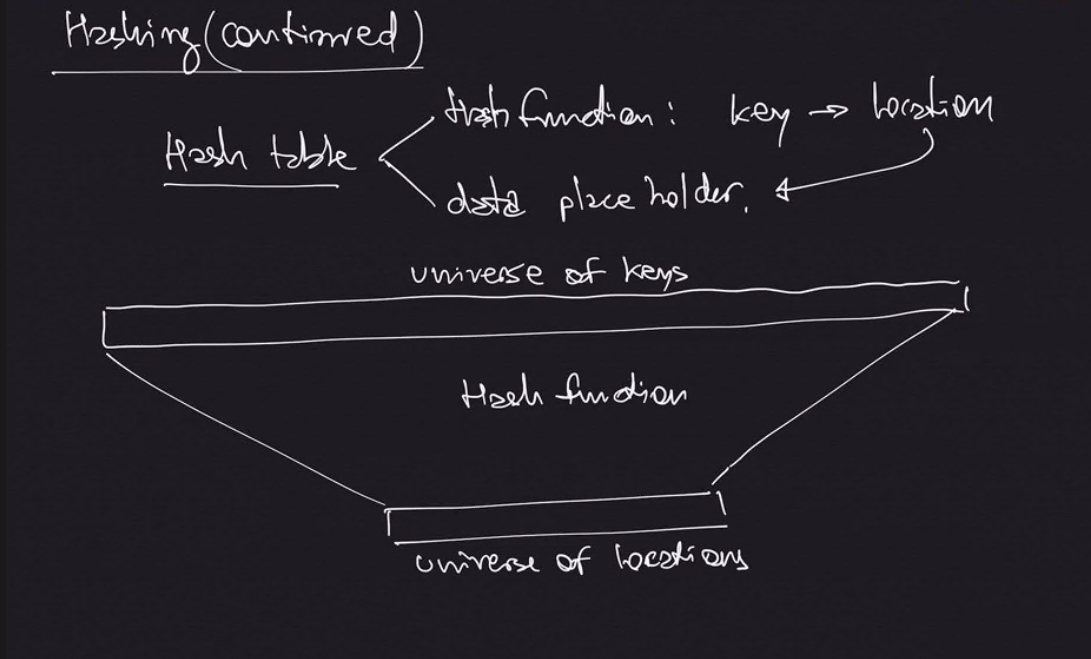 Hashing (continued)
Hash function: key → location
Hash table
data place holder.
universe of keys
Hash function
universe of locations